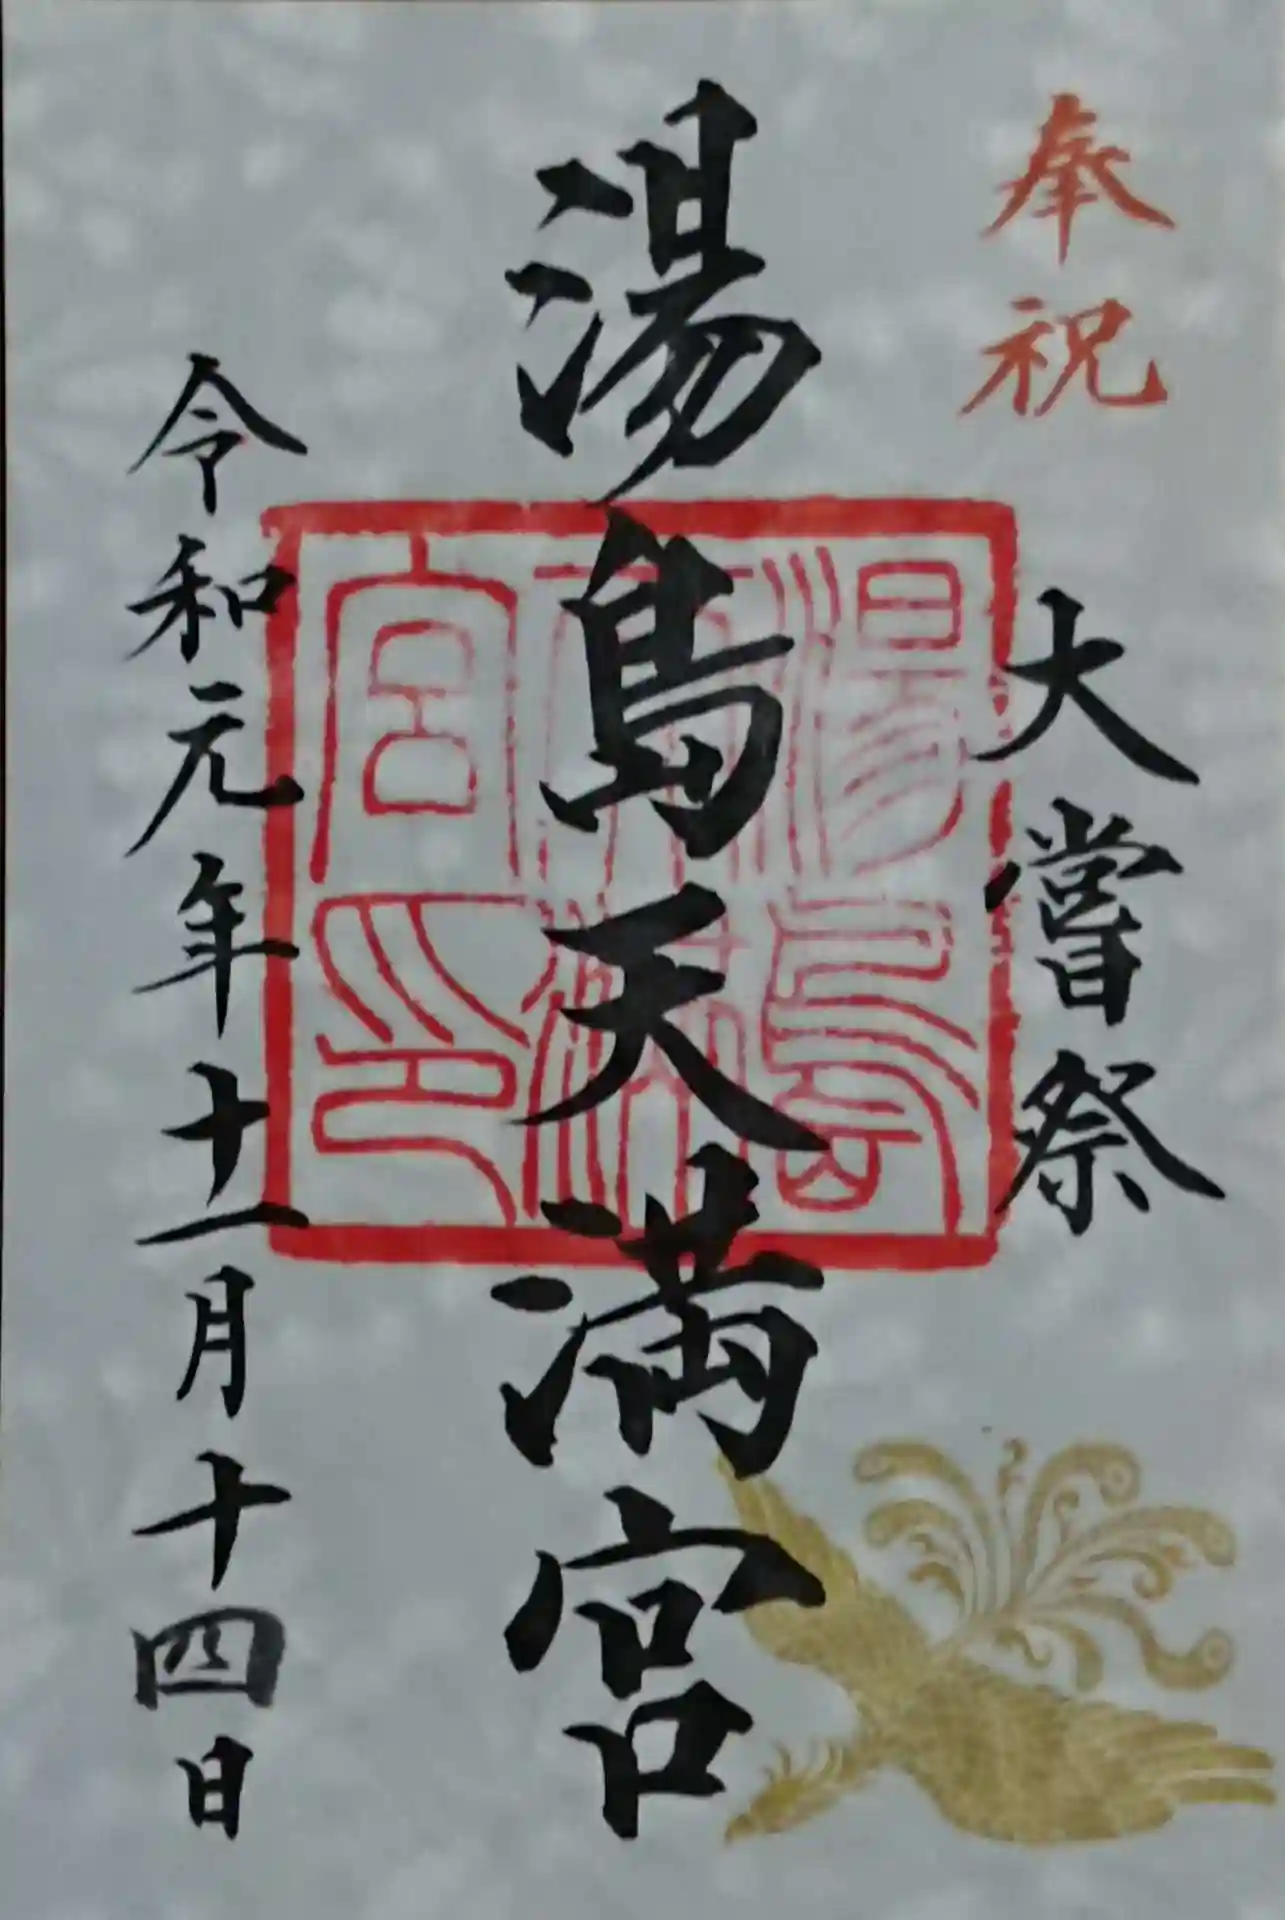 奉祝
大嘗祭
湯島天満宮
令和元年十一月十四日
湯島
天満
宮印